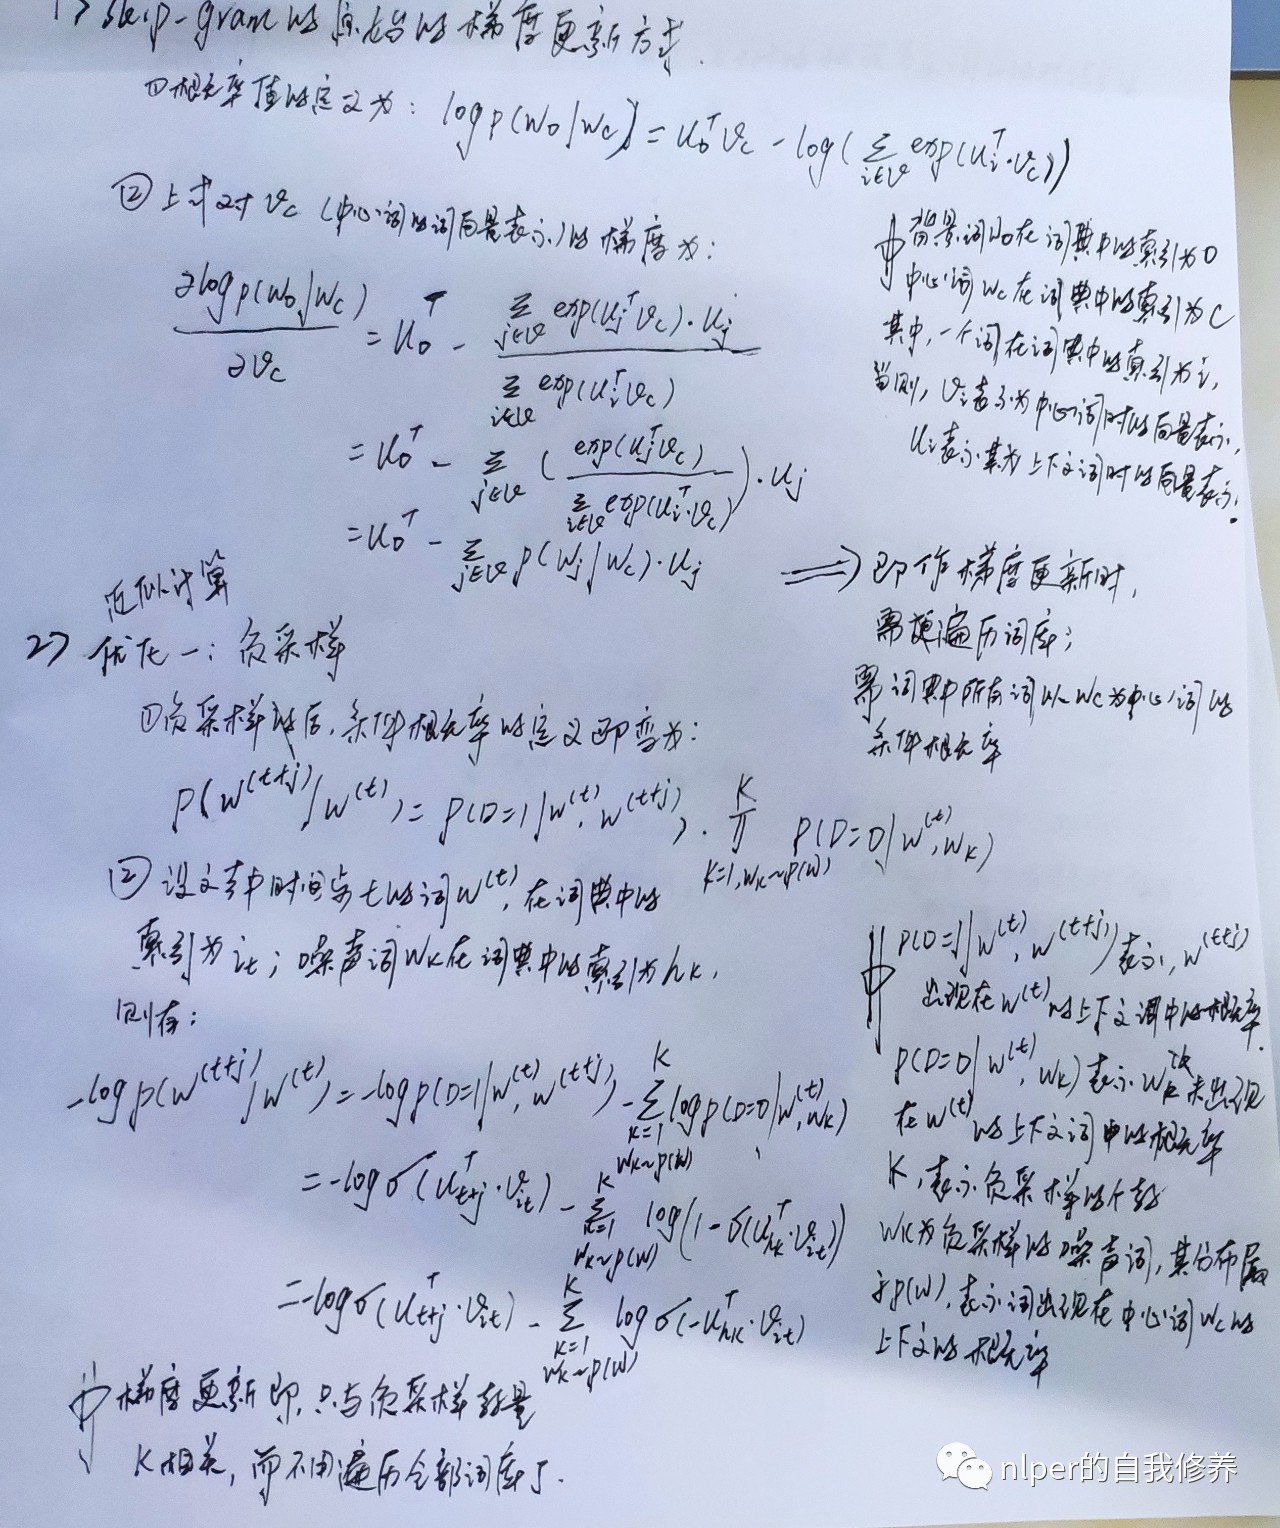 1> skip-gram的原始的梯度更新方式.
①概率值的定义为: log p(w_o|w_c) = u_o^T v_c - log(∑_{i∈v} exp(u_i^T·v_c))
②上式对 v_c (中心词的词向量表示)的梯度为:
∂log p(w_o|w_c) / ∂v_c = u_o^T - ∑_{j∈v} exp(u_j^T v_c)·u_j / ∑_{i∈v} exp(u_i^T v_c)
= u_o^T - ∑_{j∈v} ( exp(u_j^T v_c) / ∑_{i∈v} exp(u_i^T·v_c) )·u_j
= u_o^T - ∑_{j∈v} p(w_j|w_c)·u_j
背景词w_o在词典中的索引为o
中心词 w_c 在词典中的索引为c
其中,一个词在词典中的索引为i,
则, v_i表示为中心词时的向量表示,
u_i表示其为上下文词时的向量表示.
=> 即作梯度更新时,
需要遍历词库;
需词典中所有词以w_c为中心词的
条件概率
近似计算
2> 优化一: 负采样
①负采样以后,条件概率的定义即变为:
p(w^(t+j)|w^(t)) = p(D=1|w^(t), w^(t+j))·∏_{k=1,w_k~p(w)}^K p(D=0|w^(t), w_k)
②设文本中时间步t的词w^(t),在词典中的
索引为i_t; 噪声词w_k在词典中的索引为h_k,
则有:
-log p(w^(t+j)|w^(t)) = -log p(D=1|w^(t), w^(t+j)) - ∑_{k=1, w_k~p(w)}^K log p(D=0|w^(t), w_k)
= -log σ(u_{t+j}^T·v_{it}) - ∑_{k=1, w_k~p(w)}^K log(1-σ(u_{hk}^T·v_{it}))
= -log σ(u_{t+j}^T·v_{it}) - ∑_{k=1, w_k~p(w)}^K log σ(-u_{hk}^T·v_{it})
p(D=1|w^(t), w^(t+j))表示, w^(t+j)
出现在w^(t)的上下文词中的概率.
p(D=0|w^(t), w_k)表示w_k未出现
在w^(t)的上下文词中的概率
K,表示负采样的个数
w_k为负采样的噪声词,其分布属
于p(w),表示词出现在中心词w_c的
上下文的概率
梯度更新即,只与负采样数量
K相关,而不用遍历全部词库了.
nlper的自我修养